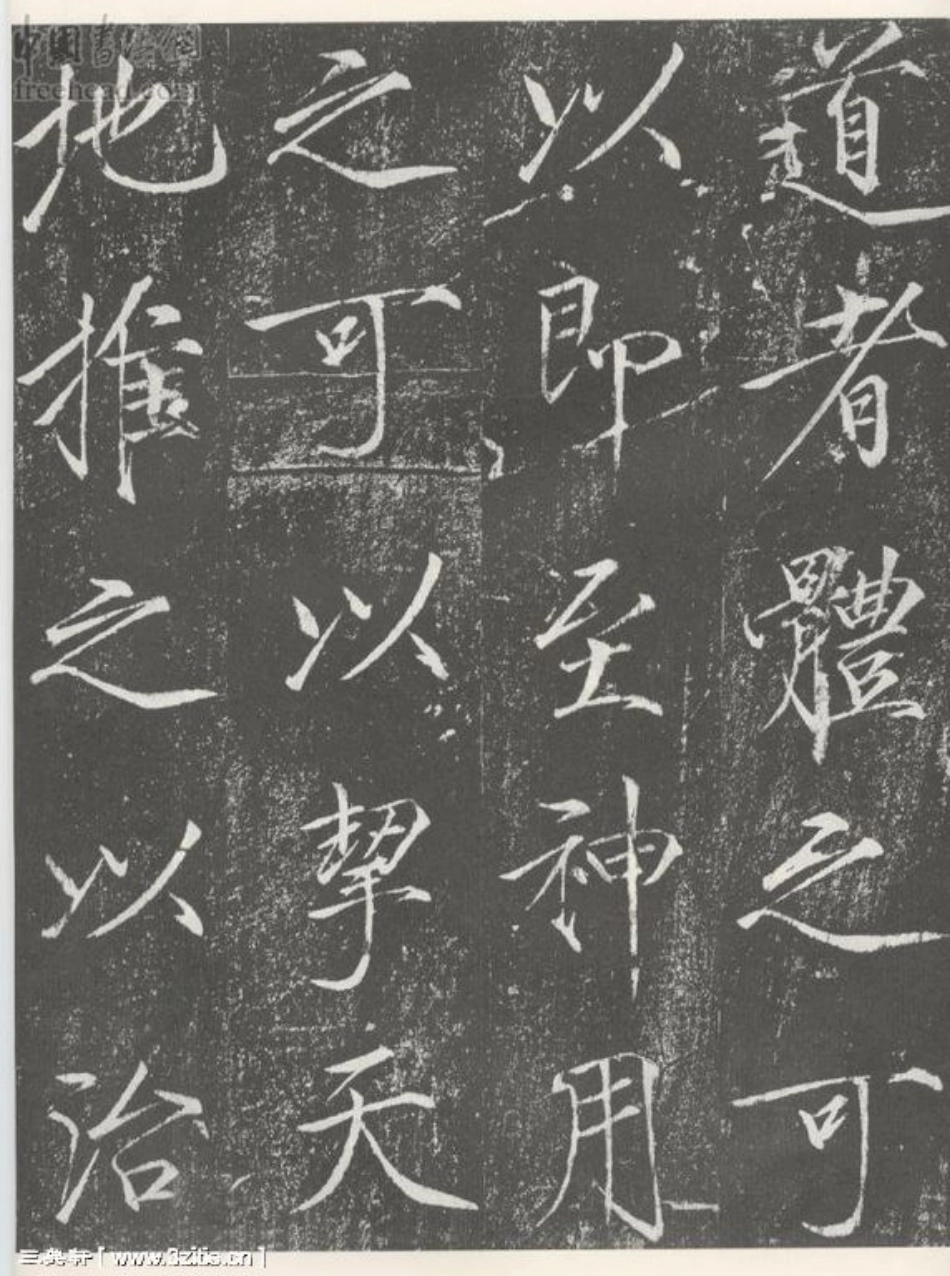 道者體之可
以即至神用
之可以挈天
地推之以治
中國書法網
freehead.com
三樂軒[www.3zitie.cn]